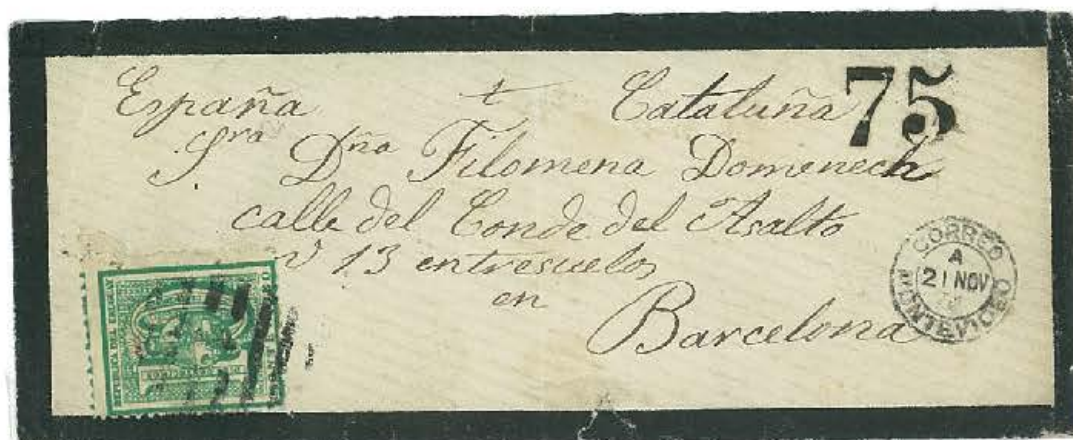 España Cataluña 75
Sra Dña Filomena Domenech
calle del Conde del Asalto
13 entresuelos
en
Barcelona
CORREO
A
21 NOV
MONTEVIDEO